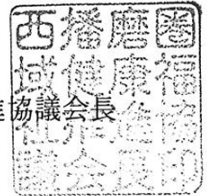 西播磨圏
域健康福
祉推進協
議会長印
進協議会長